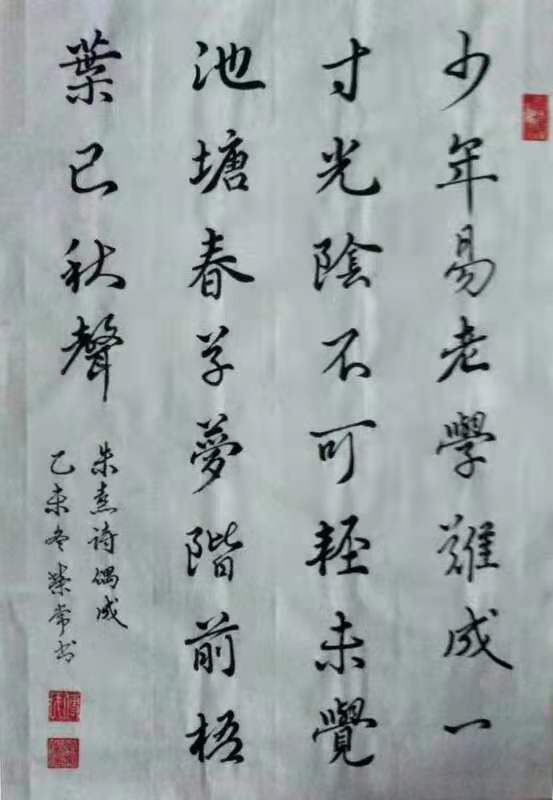 少年易老學難成一
寸光陰不可輕未覺
池塘春草夢階前梧
葉已秋聲
朱熹詩偶成
乙未冬榮常书